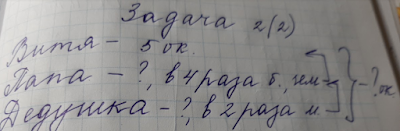 Задача 2(2)
Витя - 5 ок.
Папа - ?, в 4 раза б., чем
Дедушка - ?, в 2 раза м
- ? ок